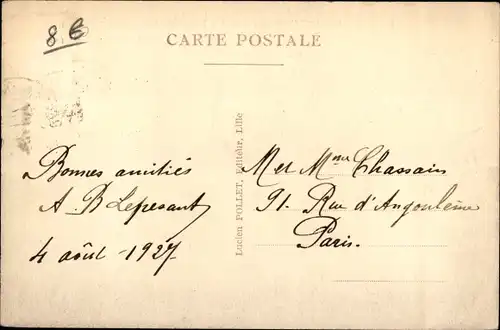 8 €
CARTE POSTALE
Bonnes amitiés
A B Lepesant
4 août 1927
Lucien POLLET, Editeur, Lille
M et Mme Chassain
91. Rue d'Angoulême
Paris.